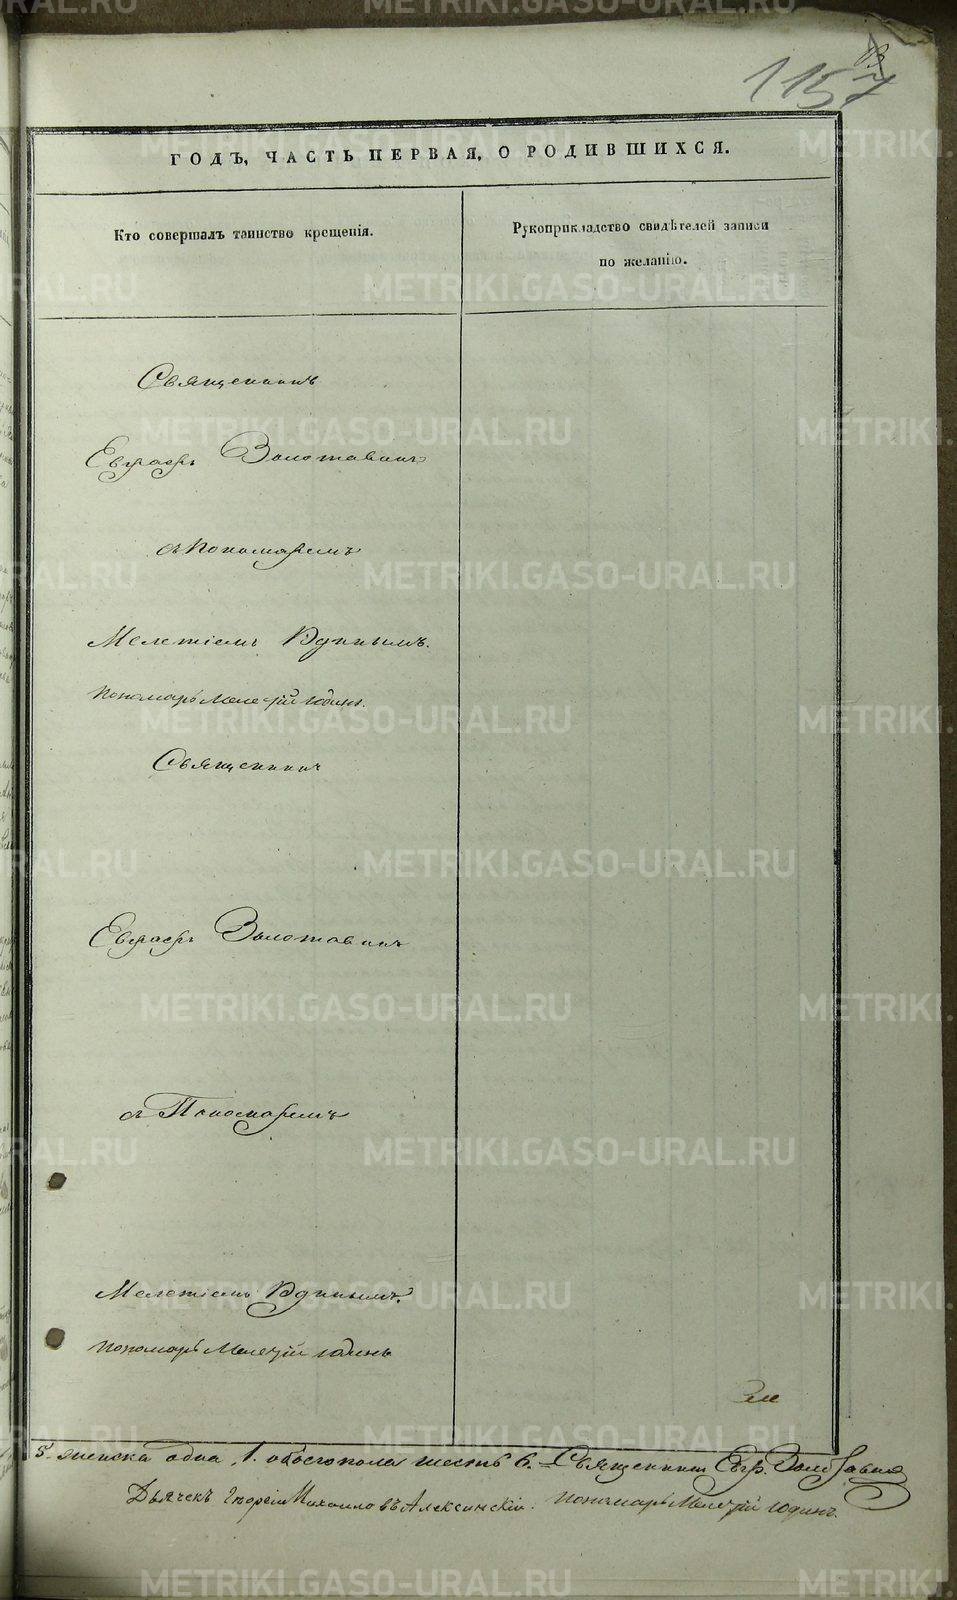 1157
ГОДЪ, ЧАСТЬ ПЕРВАЯ, О РОДИВШИХСЯ.
Кто совершалъ таинство крещенія.
Рукоприкладство свидѣтелей записи
по желанію.
Священникъ
Евграфъ Золотавинъ
съ пономаремъ
Мелетіемъ Юдинымъ.
Пономарь Мелетій Юдинъ.
Священникъ
Евграфъ Золотавинъ
съ Пономаремъ
Мелетіемъ Юдинымъ.
Пономарь Мелетій Юдинъ
5. женска одна, 1. обоего пола шесть 6. Священникъ Евгр. Золотавинъ
Дьячекъ Михайловъ Алексинскій. Пономарь Мелетій Юдинъ.
METRIKI.GASO-URAL.RU